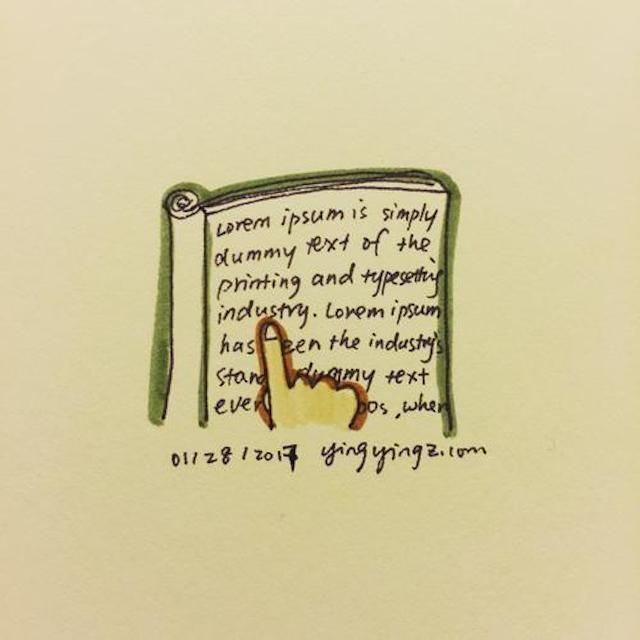 Lorem ipsum is simply
dummy text of the
printing and typesetting
industry. Lorem ipsum
has the industry's
dummy text
when
01/28/2017 yingyingz.com